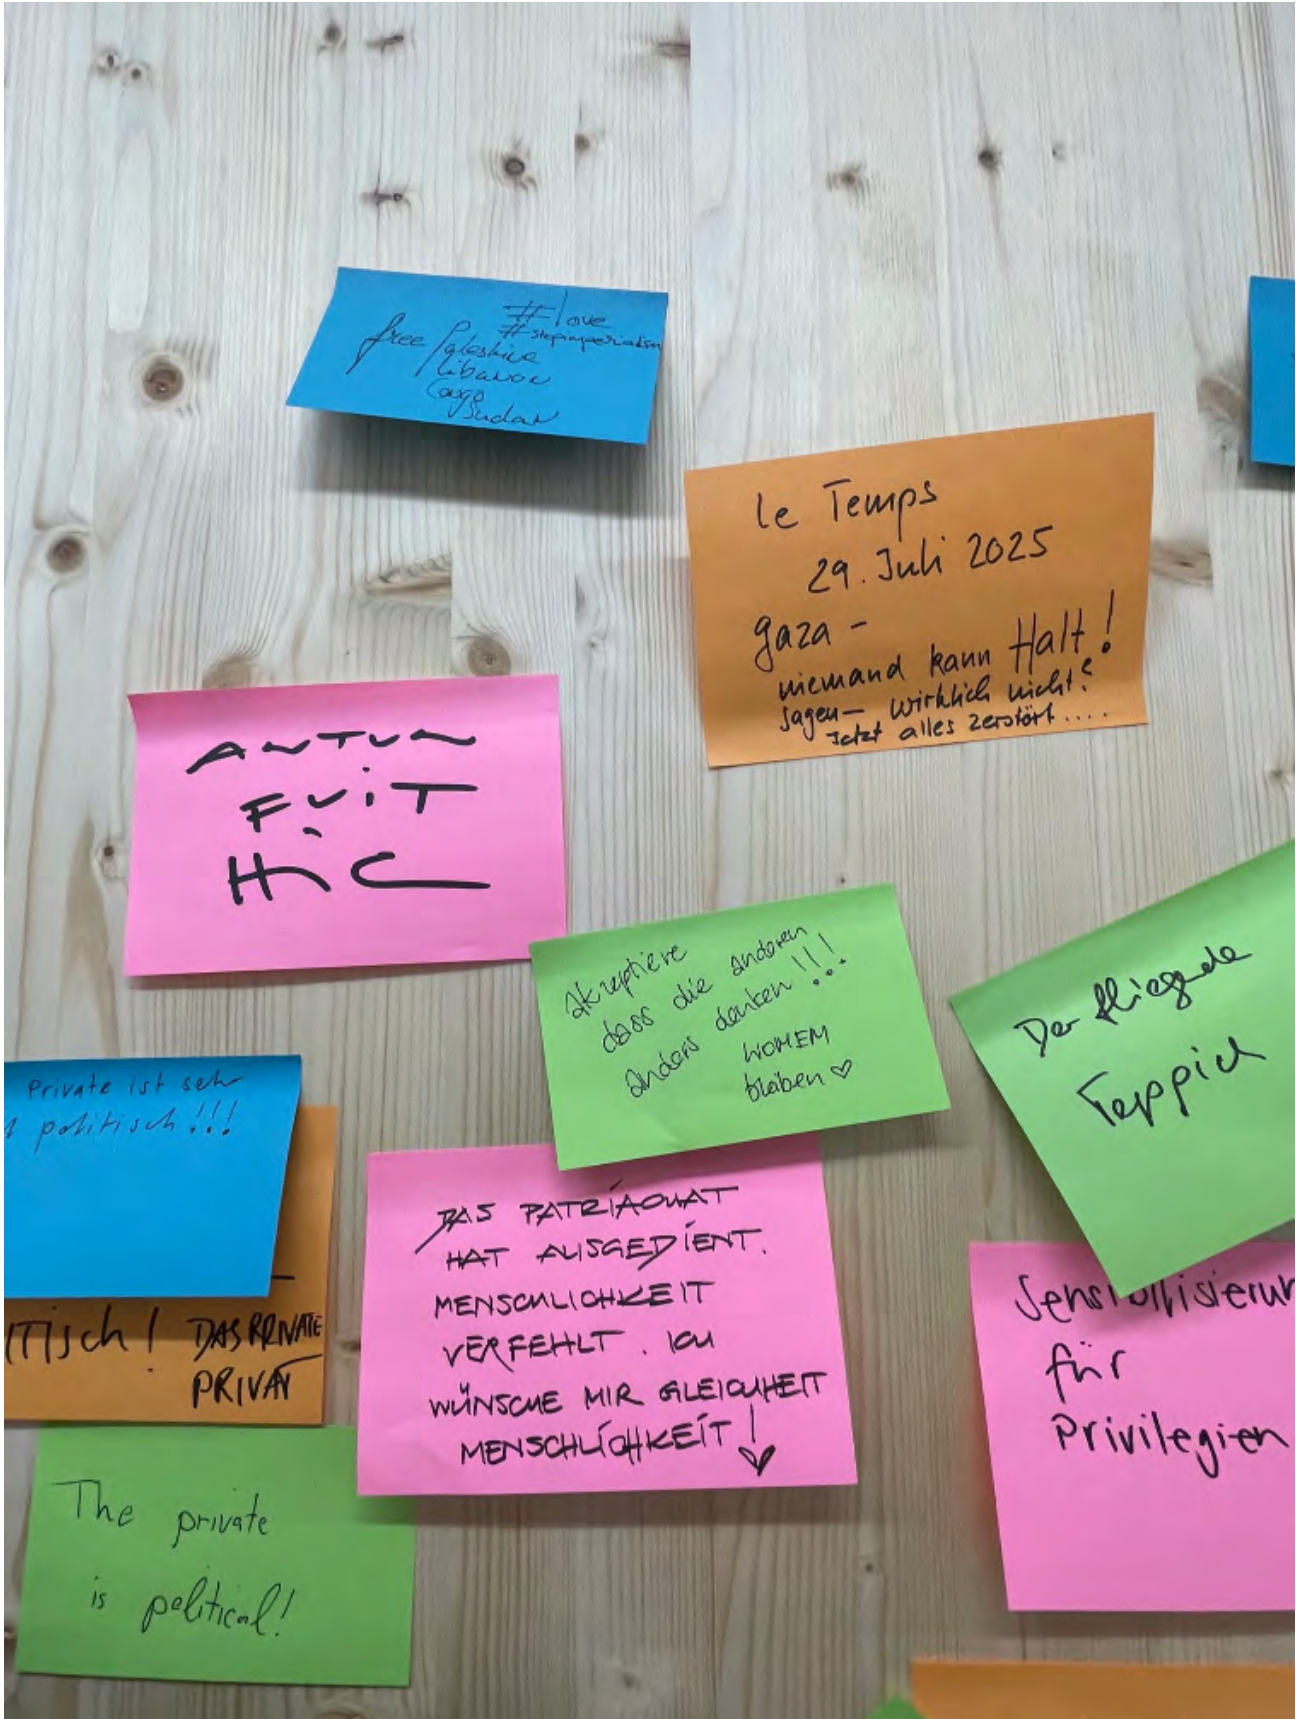 #love
#stopimperialism
free Palestine
Libanon
Congo
Sudan
le Temps
29. Juli 2025
gaza -
niemand kann Halt!
sagen - wirklich nicht?
Jetzt alles zerstört....
ANTUN
FUiT
HiC
Akzeptiere
dass die anderen
anders denken!!!
WOMEM
bleiben ♡
Der fliegende
Teppich
Private ist sehr
politisch!!!
iTisch! DAS PRIVATE
PRIVAT
DAS PATRIARCHAT
HAT AUSGEDIENT.
MENSCHLICHKEIT
VERFEHLT. ICH
WÜNSCHE MIR GLEICHHEIT
MENSCHLICHKEIT!
♡
Sensibilisierun
für
Privilegien
The private
is political!